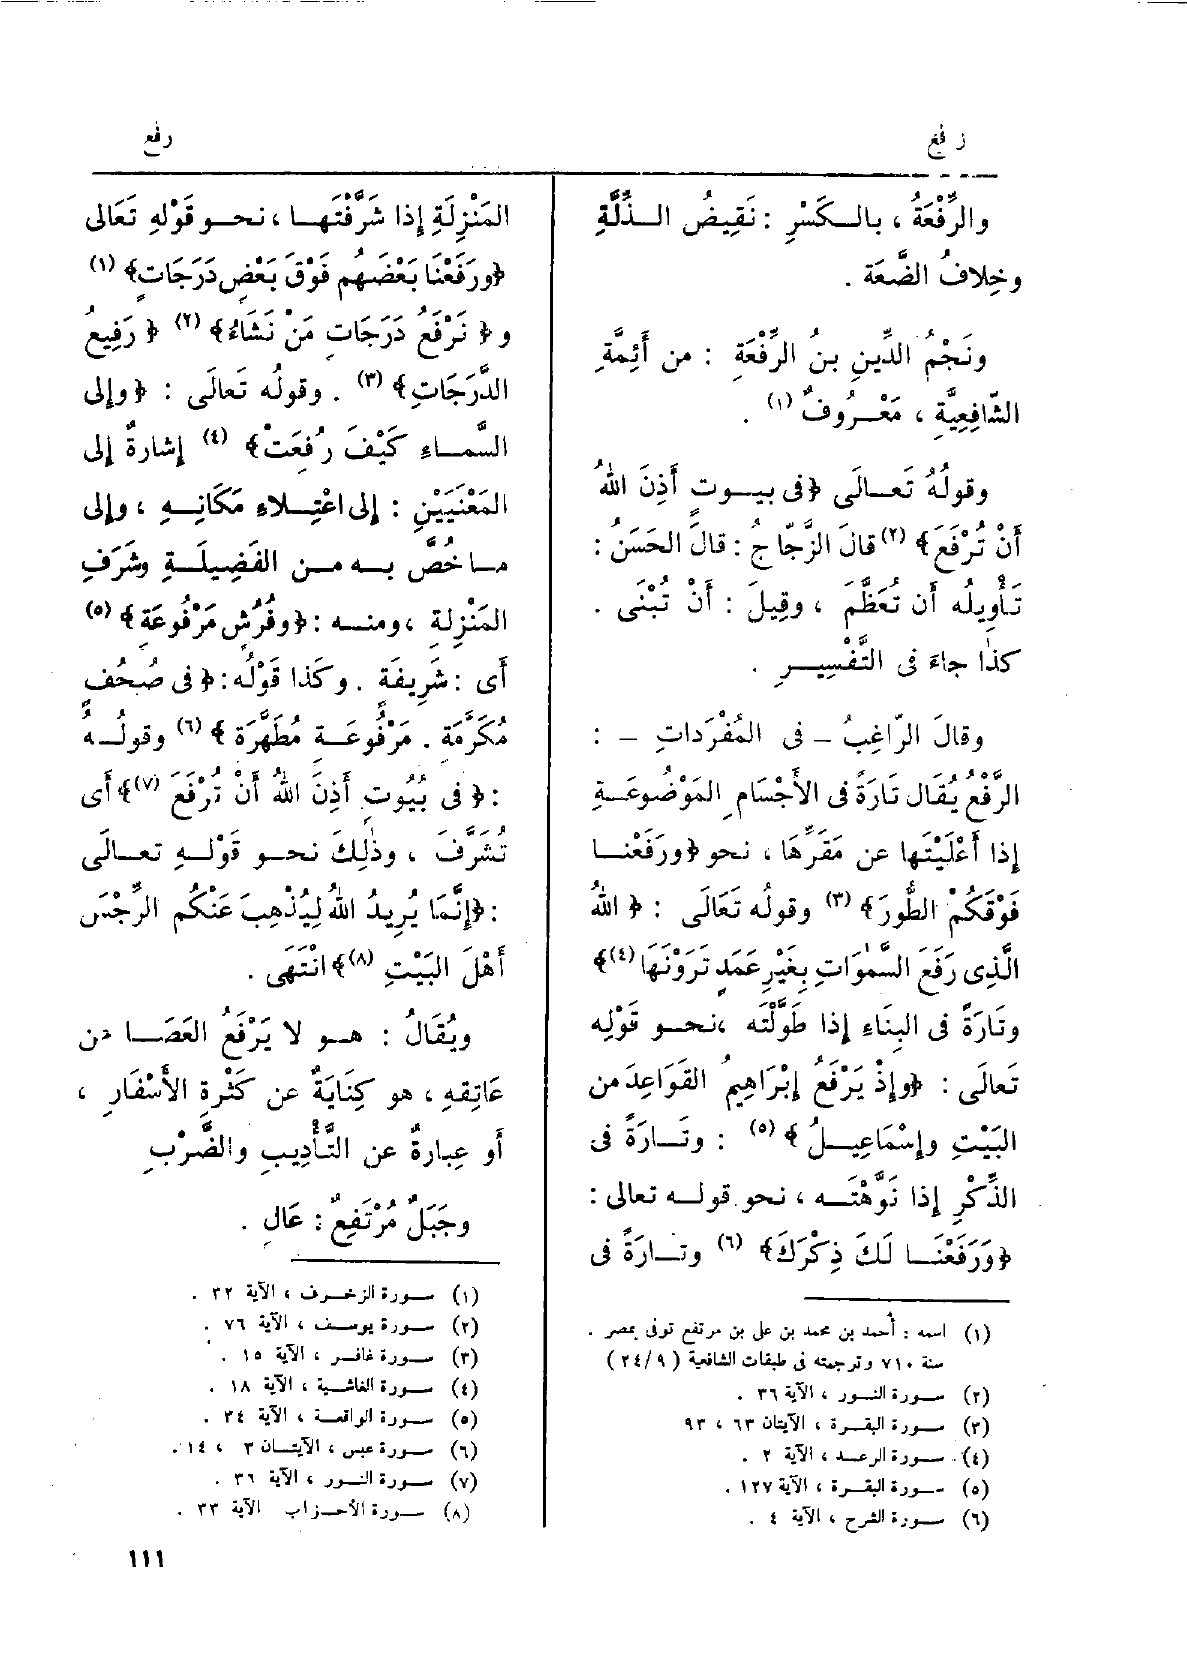 رفع
رفع
والرِّفْعَةُ ، بالكَسْرِ : نَقِيضُ الذِّلَّةِ
وخِلافُ الضَّعَة .
ونَجْمُ الدِّينِ بنُ الرِّفْعَةِ : من أَئِمَّةِ
الشَّافِعِيَّةِ ، مَعْرُوفٌ (١) .
وقولُهُ تَعالَى ﴿فى بيوتٍ أَذِنَ اللهُ
أَنْ تُرْفَعَ﴾ (٢) قالَ الزَّجّاجُ : قالَ الحَسَنُ :
تَأْوِيلُه أن تُعَظَّمَ ، وقِيلَ : أَنْ تُبْنَى .
كذٰا جاءَ فى التَّفْسِيرِ .
وقالَ الرّاغِبُ – فى المُفْرَداتِ – :
الرَّفْعُ يُقَال تَارَةً فى الأَجْسَامِ المَوْضُوعَةِ
إذا أَعْلَيْتَها عن مَقَرِّهَا ، نحو ﴿ورَفَعْنا
فَوْقَكُمْ الطُّورَ﴾ (٣) وقولُه تَعَالَى : ﴿ اللهُ
الَّذِى رَفَعَ السَّمٰوَاتِ بِغَيْرِ عَمَدٍ تَرَوْنَهَا (٤)﴾
وتَارَةً فى البِنَاءِ إذا طَوَّلْتَه ، نحو قَوْلِه
تَعالَى : ﴿وإِذْ يَرْفَعُ إبْرَاهِيمُ القَوَاعِدَ من
البَيْتِ وإِسْمَاعِيلُ﴾ (٥) : وتَارَةً فى
الذِّكْرِ إذا نَوَّهْتَه ، نحو قوله تعالى :
﴿وَرَفَعْنَا لَكَ ذِكْرَكَ﴾ (٦) وتارَةً فى
(١) اسمه : أحمد بن محمد بن على بن مرتفع توفى بمصر .
سنة ٧١٠ وترجمته فى طبقات الشافعية ( ٢٤/٩ )
(٢) سورة النور ، الآية ٣٦ .
(٣) سورة البقرة ، الآيتان ٦٣ ، ٩٣
(٤) سورة الرعد ، الآية ٢ .
(٥) سورة البقرة ، الآية ١٢٧ .
(٦) سورة الشرح ، الآية ٤ .
المَنْزِلَةِ إذا شَرَّفْتَها ، نحو قَوْلِهِ تَعَالى
﴿ورَفَعْنَا بَعْضَهُم فَوْقَ بَعْضٍ دَرَجَاتٍ﴾ (١)
و﴿ نَرْفَعُ دَرَجَاتٍ مَنْ نَشَاءُ﴾ (٢) ﴿ رَفِيعُ
الدَّرَجَاتِ﴾ (٣) . وقولُه تَعالَى : ﴿وإلى
السَّماءِ كَيْفَ رُفِعَتْ﴾ (٤) إشارةٌ إلى
المَعْنَيَيْنِ : إلى اعْتِلاءِ مَكَانِهِ ، وإلى
ما خُصَّ به من الفَضِيلَةِ وشَرَفِ
المَنْزِلةِ ، ومنه : ﴿وفُرُشٍ مَرْفُوعَةٍ﴾ (٥)
أى : شَرِيفَةٍ . وكَذا قَوْلُه : ﴿فى صُحُفٍ
مُكَرَّمَة . مَرْفُوعَةٍ مُطَهَّرَة ﴾ (٦) وقولُه
: ﴿فى بُيُوتٍ أَذِنَ اللهُ أَنْ تُرْفَعَ (٧)﴾ أى
تُشَرَّفَ ، وذٰلِكَ نحو قَوْلِهِ تعالَى
: ﴿إِنَّمَا يُرِيدُ اللهُ لِيُذْهِبَ عَنْكُم الرِّجْسَ
أَهْلَ البَيْتِ (٨)﴾ انْتَهَى .
ويُقَالُ : هو لا يَرْفَعُ العَصَا من
عَاتِقِهِ ، هو كِنَايَةٌ عن كَثْرةِ الأَسْفَارِ ،
أو عِبارةٌ عن التَّأْدِيبِ والضَّرْبِ
وجَبَلٌ مُرْتَفِعٌ : عَالٍ .
(١) سورة الزخرف ، الآية ٣٢ .
(٢) سورة يوسف ، الآية ٧٦ .
(٣) سورة غافر ، الآية ١٥ .
(٤) سورة الغاشية ، الآية ١٨ .
(٥) سورة الواقعة ، الآية ٣٤ .
(٦) سورة عبس ، الآيتان ٣ ، ١٤ .
(٧) سورة النور ، الآية ٣٦ .
(٨) سورة الأحزاب الآية ٣٣ .
١١١